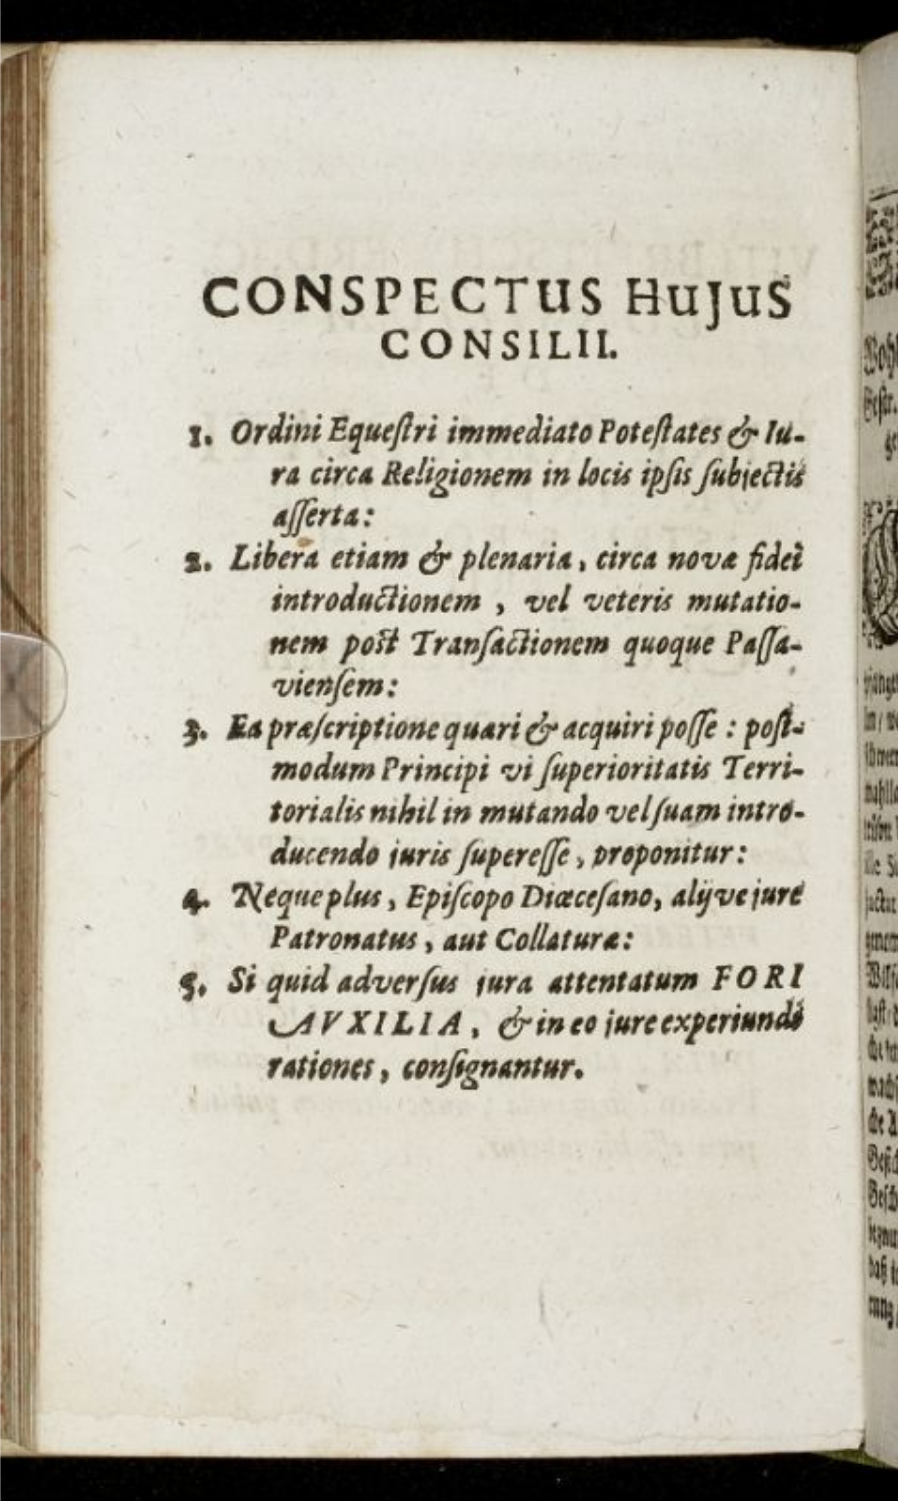 CONSPECTUS HuJuS
CONSILII.
1. Ordini Equeſtri immediato Poteſtates & Iu-
ra circa Religionem in locis ipſis ſubjectis
aſſerta:
2. Libera etiam & plenaria, circa novæ fidei
introductionem, vel veteris mutatio-
nem poſt Tranſactionem quoque Paſſa-
vienſem:
3. Ea præſcriptione quæri & acquiri poſſe: poſt-
modum Principi vi ſuperioritatis Terri-
torialis nihil in mutando vel ſuam intro-
ducendo juris ſupereſſe, proponitur:
4. Neque plus, Epiſcopo Diœceſano, alijve jure
Patronatus, aut Collaturæ:
5. Si quid adverſus jura attentatum FORI
AVXILIA, & in eo jure experiundi
rationes, conſignantur.